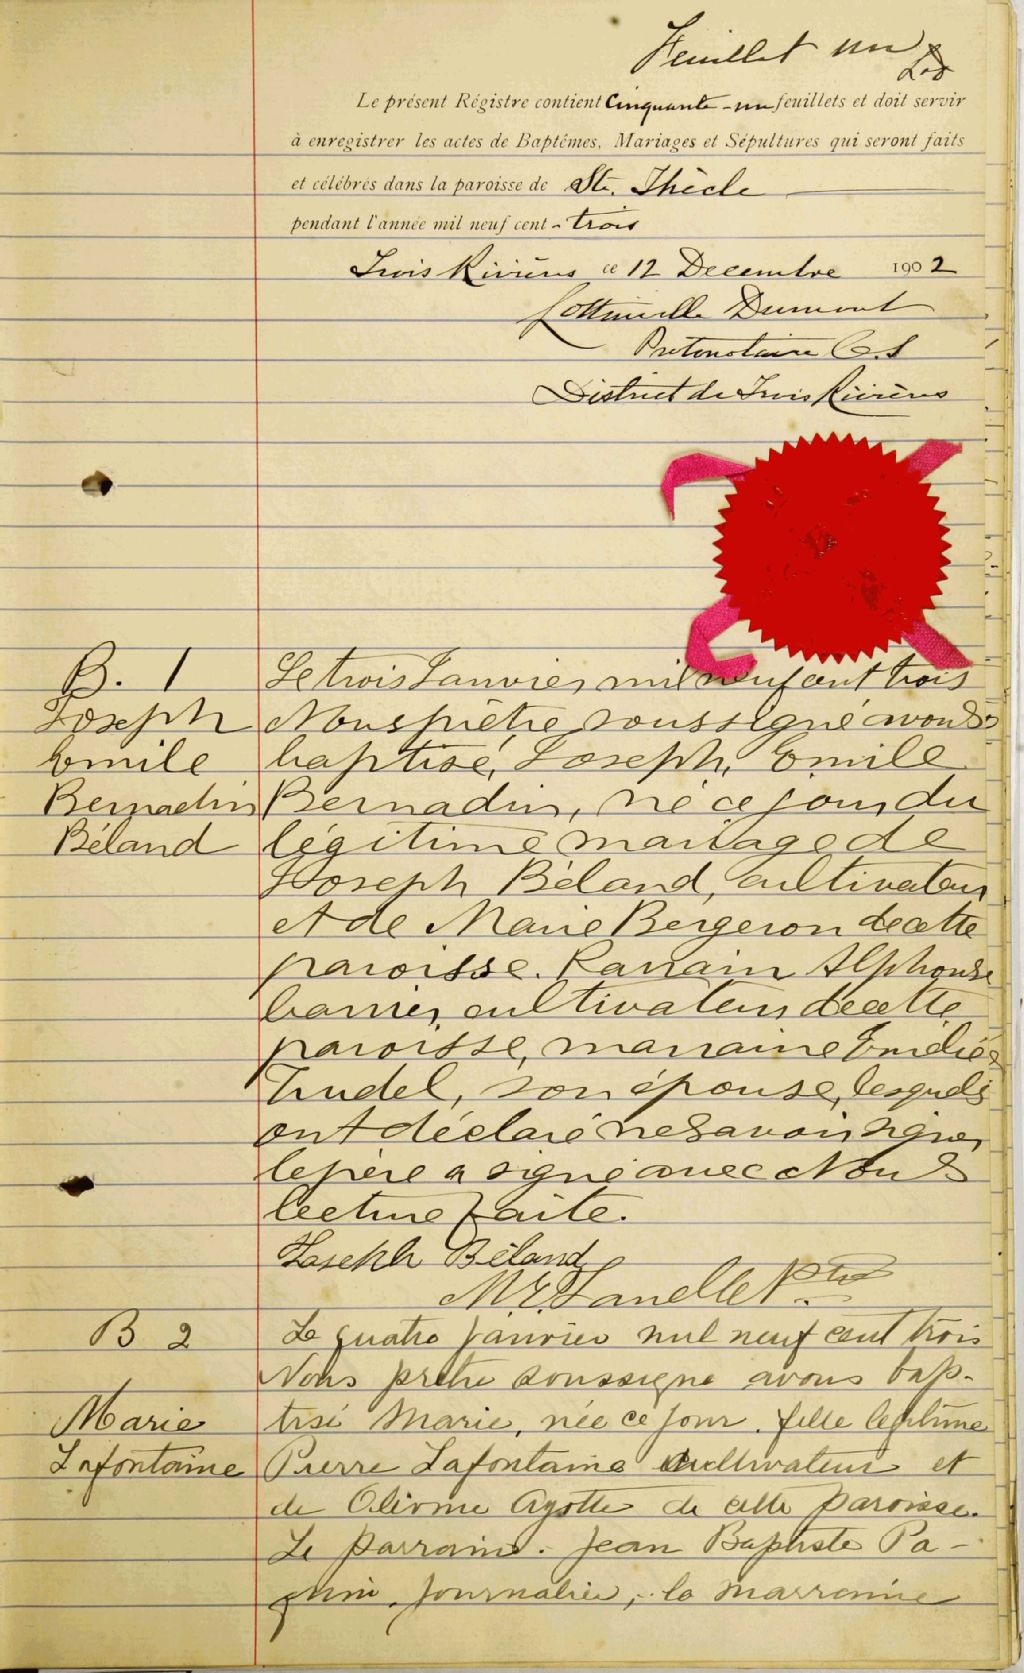 Feuillet un
L.D
Le présent Régistre contient Cinquante-un feuillets et doit servir
à enregistrer les actes de Baptêmes, Mariages et Sépultures qui seront faits
et célébrés dans la paroisse de Ste. Thècle
pendant l'année mil neuf cent - trois
Trois Rivières ce 12 Decembre 1902
Lottinville Dumont
Protonotaire C.S
District de Trois Rivières
B. 1
Joseph
Emile
Bernadin
Béland
Le trois Janvier mil neuf cent trois
Nous prêtre soussigné avons
baptisé, Joseph, Emile
Bernadin, né ce jour, du
légitime mariage de
Joseph Béland, cultivateur
et de Marie Bergeron de cette
paroisse. Parrain Alphonse
cultivateur de cette
paroisse, marraine Emélie
Trudel, son épouse, lesquels
ont déclaré ne savoir signer
le père a signé avec Nous
lecture faite.
Joseph Béland
M.E. Janelle Ptre
B 2
Marie
Lafontaine
Le quatre janvier mil neuf cent trois
Nous prêtre soussigné avons bap-
tisé Marie, née ce jour. fille légitime
Pierre Lafontaine cultivateur et
de Olivine Ayotte de cette paroisse.
Le parrain. Jean Baptiste Pa-
quin, journalier, la marraine